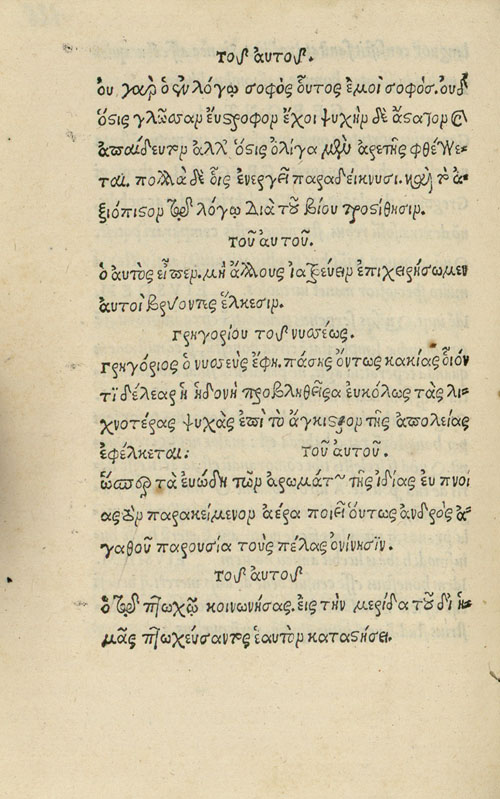 τοῦ αὐτοῦ.
ὀυ γαρ ὁ ἐν λόγῳ σοφὸς ὅυτος ἐμοὶ σοφόσ. ὀυδ
ὅστις γλῶσσαν ἔυστροφον ἔχοι ψυχὴν δὲ ἄστατον καὶ
ἀπαίδευτον ἀλλ' ὅστις ὀλίγα μὲν ἀρετῆς φθέγγε-
ται. πολλὰ δὲ ὃις ἐνεργεῖ παραδείκνυσι. καὶ τὸ ἀ-
ξιόπιστον τῷ λόγῳ διὰ τοῦ βίου προστίθησιν.
τοῦ αὐτοῦ.
ὁ αυτὸς εἶπεν. μὴ ἄλλους ἰατρεύειν ἐπιχειρήσωμεν
αυτοὶ βρύοντες ἕλκεσιν.
γρηγορίου τοῦ νυσσέως.
γρηγόριος ὁ νυσσεὺς ἔφη. πάσης ὄντως κακίας ὁιόν
τι δέλεαρ ἡ ἡδονὴ προβληθεῖσα ἐυκόλως τὰς λι-
χνοτέρας ψυχὰς ἐπὶ τὸ ἄγκιστρον τῆς ἀπολείας
ἐφέλκεται: τοῦ ἀυτοῦ.
ὥσπερ τὰ ἐυώδη τῶν ἀρωμάτων τῆς ἰδίας ἐυπνοί
ας τὸν παρακείμενον ἀέρα ποιεῖ ὅυτως ἀνδρὸς ἀ-
γαθοῦ παρουσία τοὺς πέλας ὀνίνησιν.
τοῦ ἀυτοῦ
ὁ τῷ πτωχῷ κοινωνήσας. ἐις τὴν μερίδα τοῦ δι ἡ-
μᾶς πτωχέυσαντος ἑαυτὸν καταστήσει.